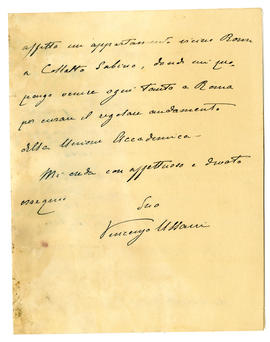 affitto un appartamento vicino Roma
a Collalto Sabino, donde mi pro-
pongo venire ogni tanto a Roma
per curare il regolare andamento
della Unione Accademica.
Mi creda con affettuoso e devoto
ossequio
Suo
Vincenzo Ussani